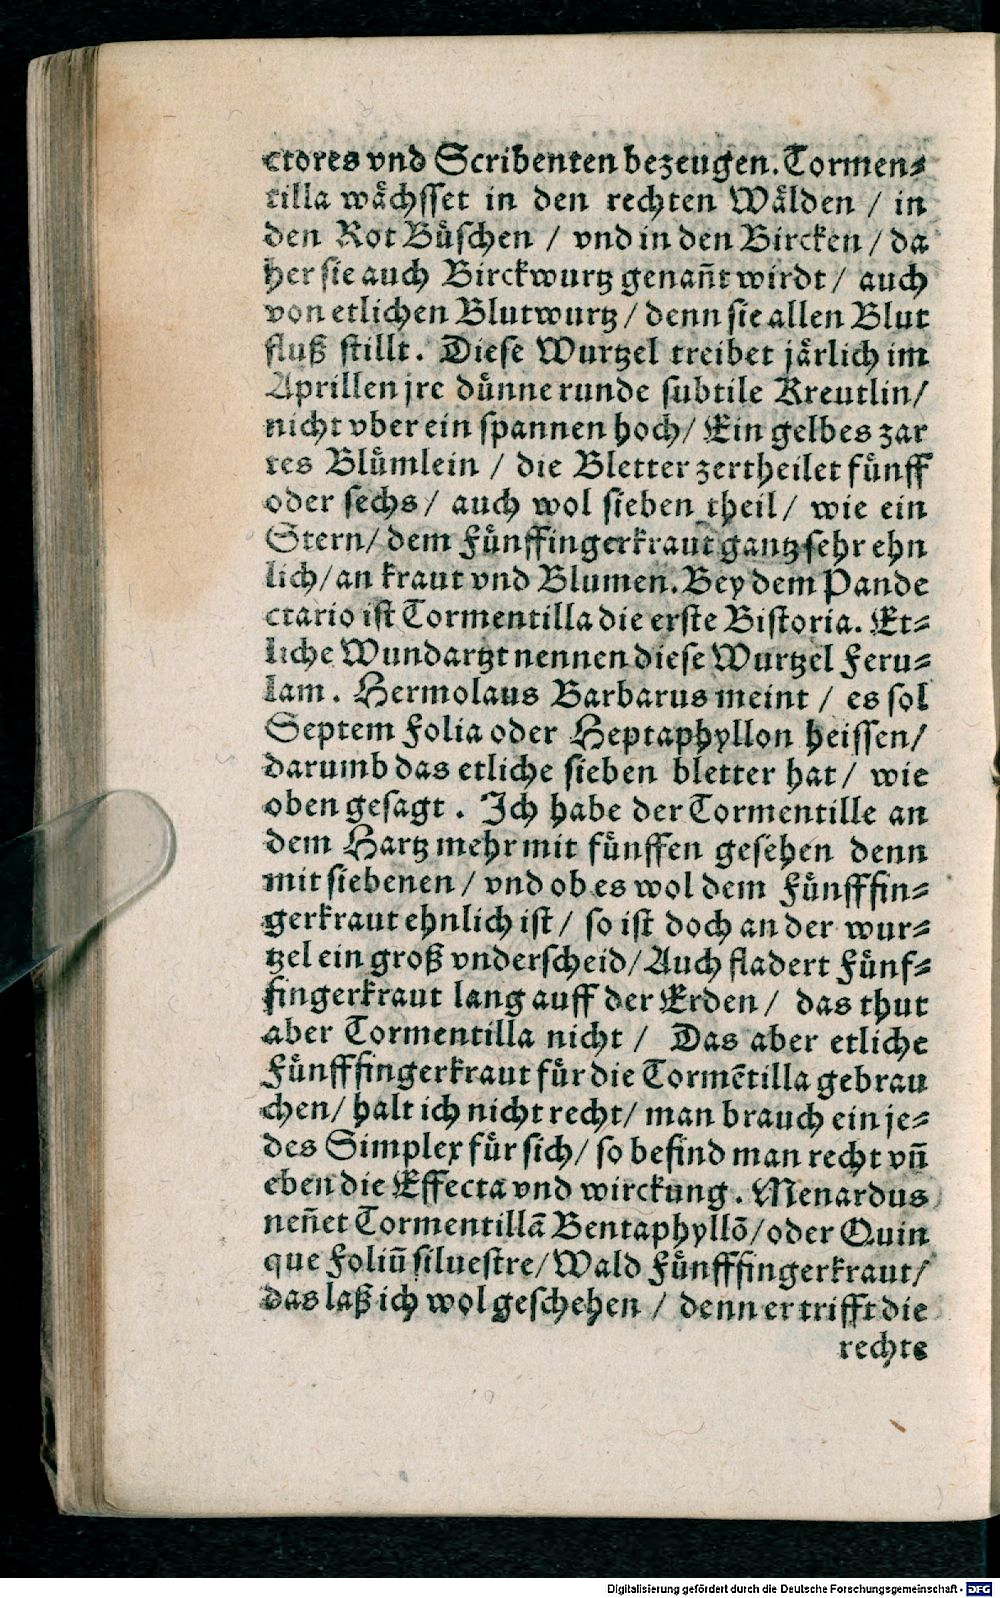 ctores vnd Scribenten bezeugen. Tormen⸗
tilla wåchsset in den rechten Wålden / in
den Rot Bůschen / vnd in den Bircken / da
her sie auch Birckwurtz genañt wirdt / auch
von etlichen Blutwurtz / denn sie allen Blut
fluß stillt. Diese Wurtzel treibet jårlich im
Aprillen jre důnne runde subtile Kreutlin /
nicht vber ein spannen hoch / Ein gelbes zar
tes Blůmlein / die Bletter zertheilet fůnff
oder sechs / auch wol sieben theil / wie ein
Stern / dem Fůnffingerkraut gantz sehr ehn
lich / an kraut vnd Blumen. Bey dem Pande
ctario ist Tormentilla die erste Bistoria. Et⸗
liche Wundartzt nennen diese Wurtzel Feru⸗
lam. Hermolaus Barbarus meint / es sol
Septem Folia oder Heptaphyllon heissen /
darumb das etliche sieben bletter hat / wie
oben gesagt. Ich habe der Tormentille an
dem Hartz mehr mit fůnffen gesehen denn
mit siebenen / vnd ob es wol dem Fůnfffin⸗
gerkraut ehnlich ist / so ist doch an der wur⸗
tzel ein groß vnderscheid / Auch fladert Fůnf⸗
fingerkraut lang auff der Erden / das thut
aber Tormentilla nicht / Das aber etliche
Fůnfffingerkraut fůr die Tormẽtilla gebrau
chen / halt ich nicht recht / man brauch ein je⸗
des Simplex fůr sich / so befind man recht vñ
eben die Effecta vnd wirckung. Menardus
neñet Tormentillã Bentaphyllõ / oder Quin
que Foliũ siluestre / Wald Fůnfffingerkraut /
das laß ich wol geschehen / denn er trifft die
rechte
Digitalisierung gefördert durch die Deutsche Forschungsgemeinschaft - DFG